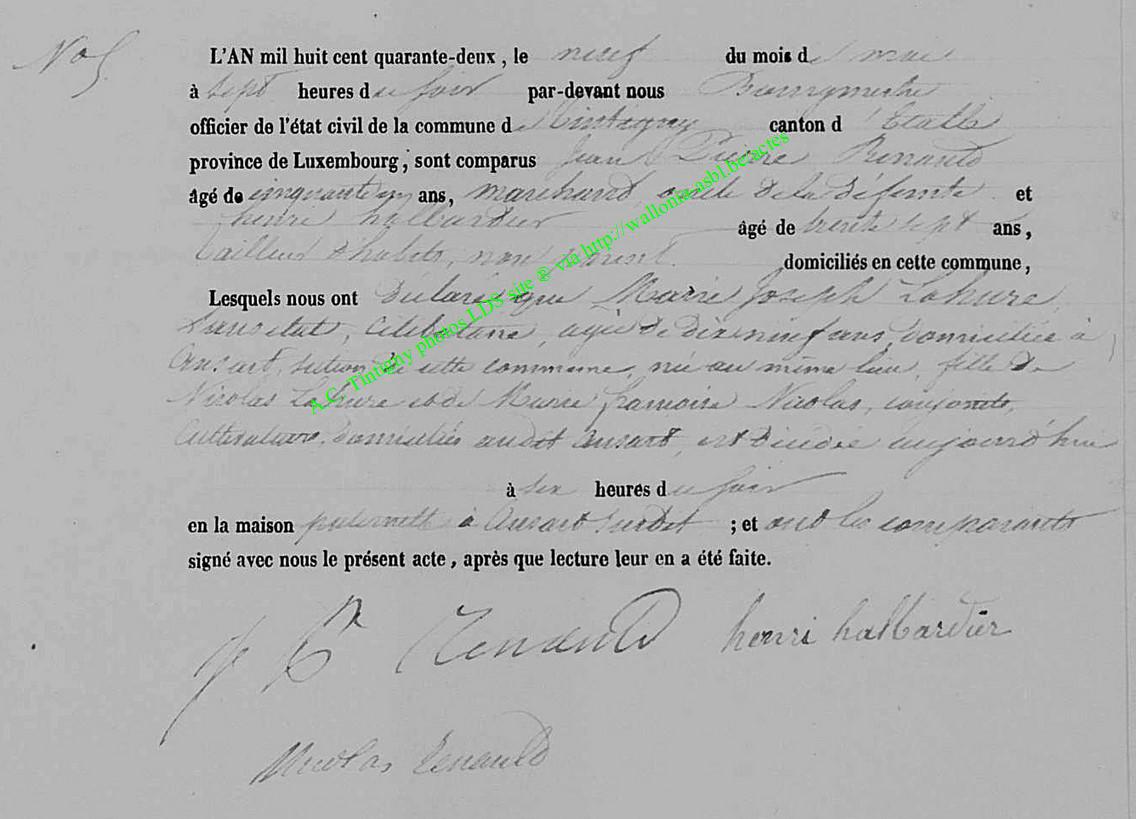 No 5
L'AN mil huit cent quarante-deux, le neuf du mois de mai
à sept heures du soir par-devant nous Bourgmestre
officier de l'état civil de la commune de Tintigny canton d'Etalle
province de Luxembourg, sont comparus Jean Pierre Renauld
âgé de cinquante un ans, marchand, oncle de la défunte et
henri halbardier âgé de trente sept ans,
tailleur d'habits, non parent domiciliés en cette commune,
Lesquels nous ont déclaré que Marie Joseph Lahure
célibataire, agée de dix neuf ans, domiciliée à
Ansart, section de cette commune, née au même lieu, fille de
Nicolas Lahure et de Marie françoise Nicolas, conjoints,
cultivateurs, domiciliés audit Ansart, est décédée aujourd'hui
à six heures du soir
en la maison paternelle à Ansart susdit ; et ont les comparants
signé avec nous le présent acte, après que lecture leur en a été faite.
J P Renauld henri halbardier
Nicolas Renauld
A.C. Tintigny photos LDS site ® via http://wallonia-asbl.be/actes